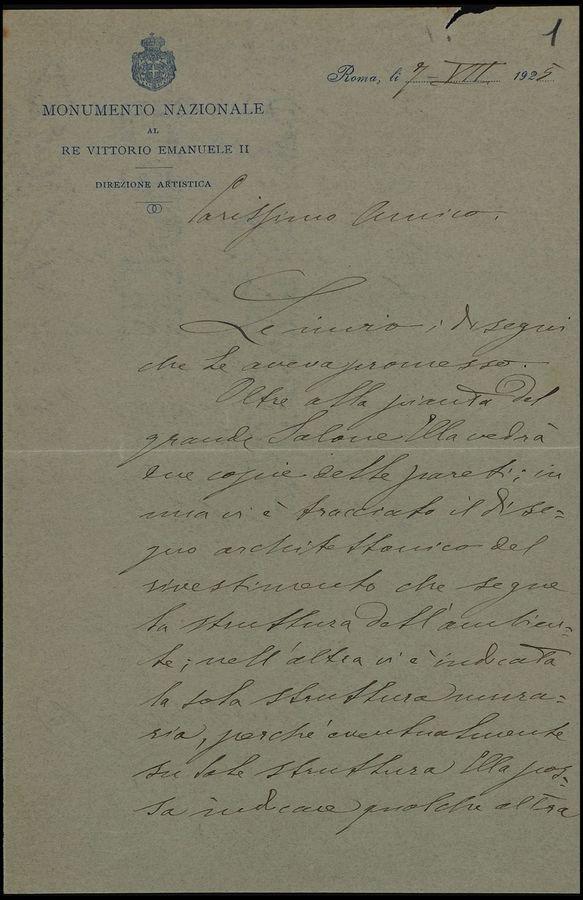 1
Roma, li 9 - VII 1925
MONUMENTO NAZIONALE
AL
RE VITTORIO EMANUELE II
DIREZIONE ARTISTICA
Carissimo Amico.
Le invio i disegni
che Le aveva promesso.
Oltre alla pianta del
grande Salone Ella vedrà
due copie delle pareti; in
una vi è tracciato il dise=
gno architettonico del
rivestimento che segue
la struttura dell'ambien=
te; nell'altra vi è indicata
la sola struttura mura=
ria, perché eventualmente
su tale struttura Ella pos=
sa indicare qualche altra